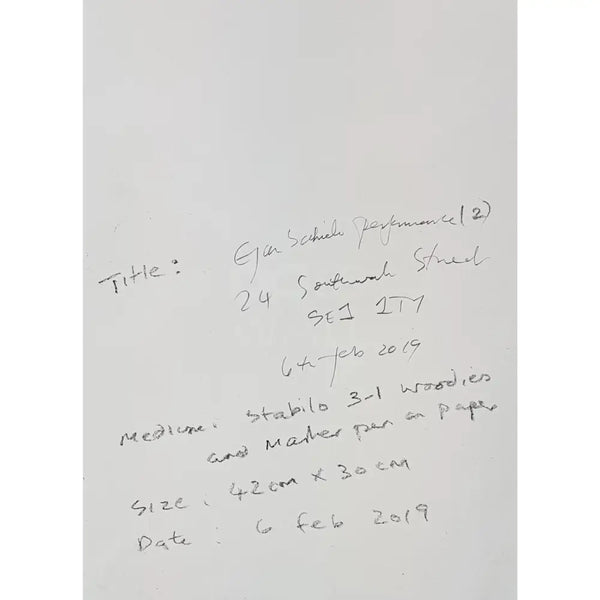 Title: Egon Schiele performance (2)
24 Southwark Street
SE1 1TY
6th feb 2019
Medium: Stabilo 3-1 Woodies
and Marker pen on paper
Size: 42cm x 30cm
Date: 6 feb 2019